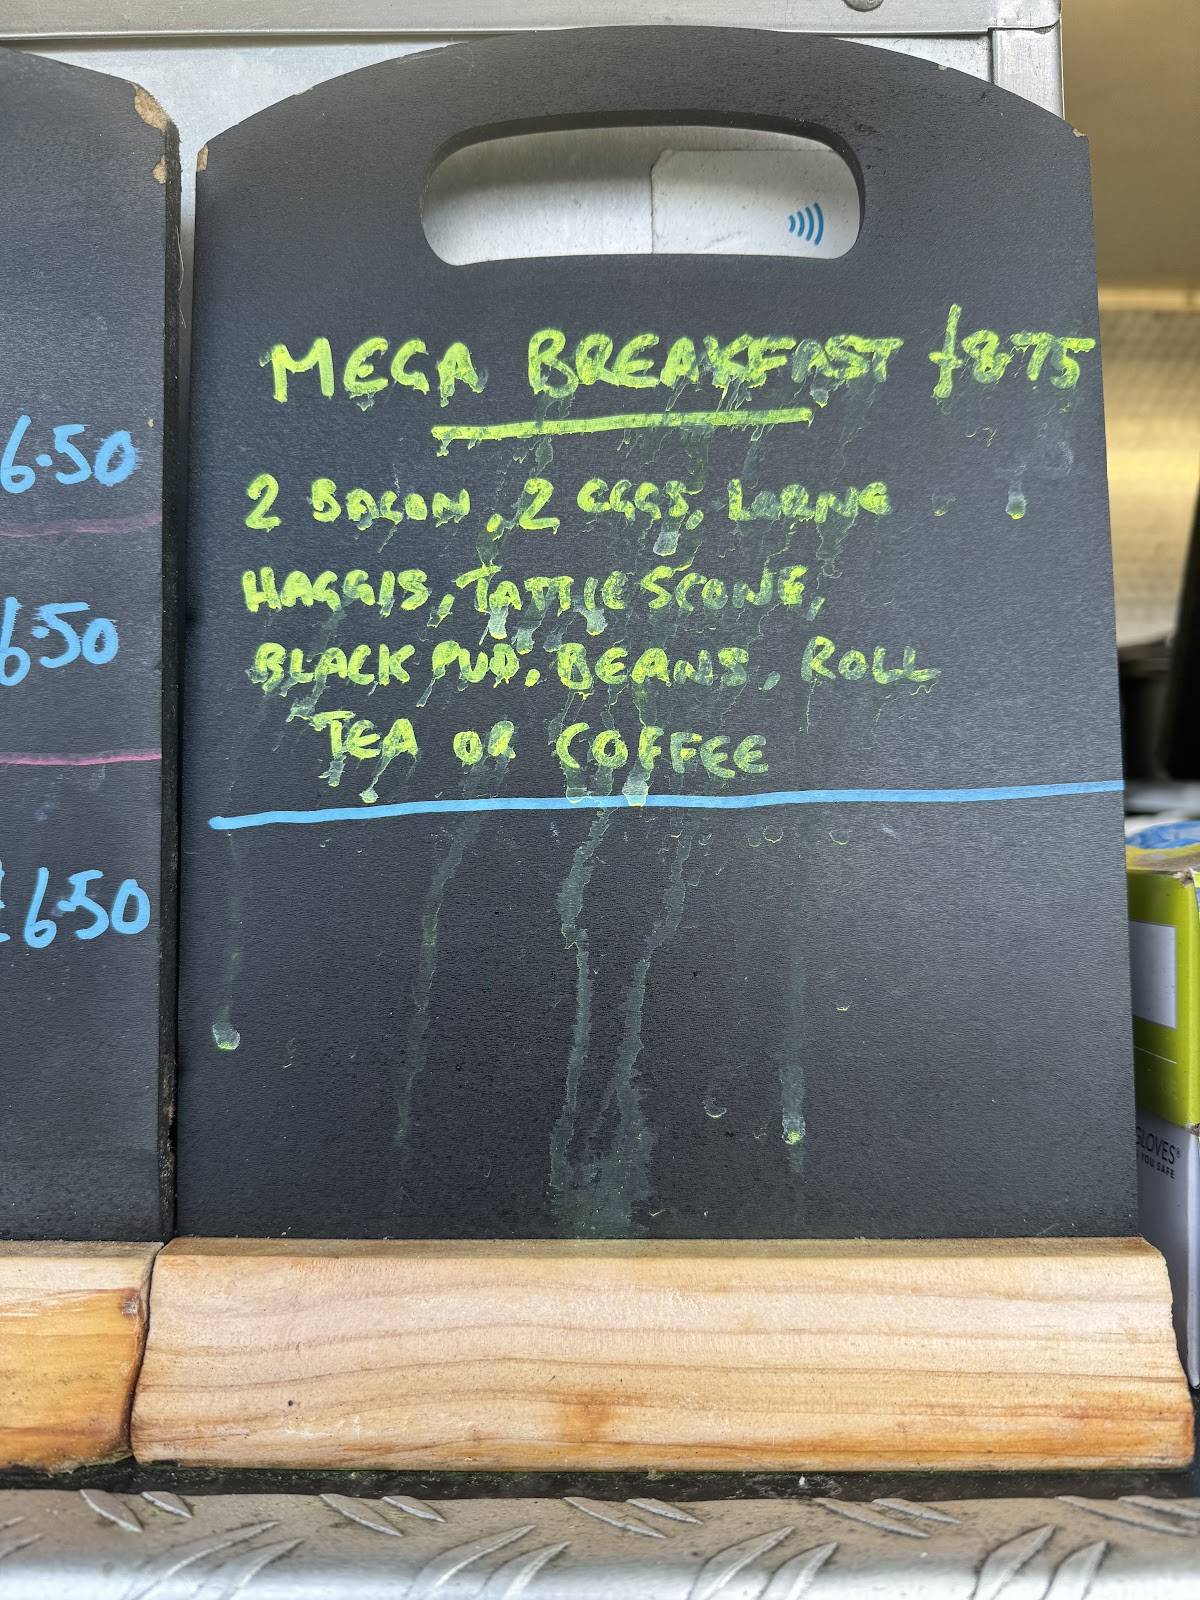 6.50
6.50
£6.50
MEGA BREAKFAST £8.75
2 BACON, 2 EGGS, LORNE
HAGGIS, TATTIE SCONE,
BLACK PUD, BEANS, ROLL
TEA OR COFFEE
GLOVES®
YOU SAFE